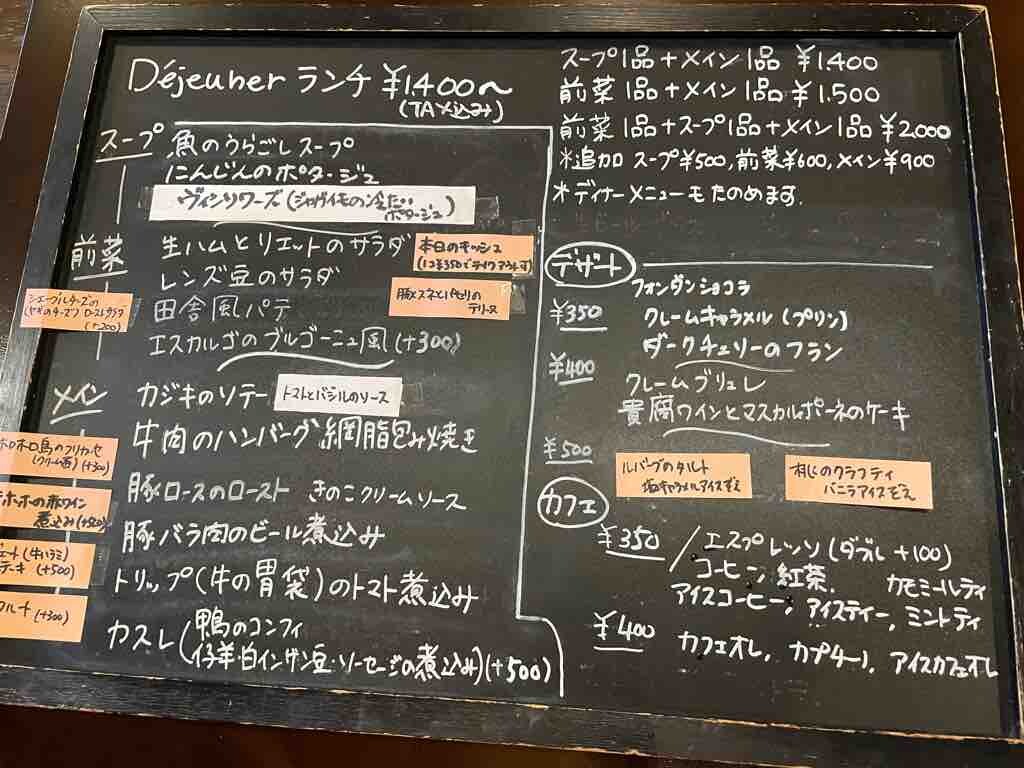 Déjeuner ランチ ¥1.400〜
(TAX込み)
スープ
魚のうらごしスープ
にんじんのポタージュ
ヴィシソワーズ(ジャガイモの冷たい
ポタージュ)
前菜
生ハムとリエットのサラダ
本日のキッシュ
(1コ¥350でテイクアウト可)
レンズ豆のサラダ
豚スネとパセリの
テリーヌ
シェーブルチーズの
(ヤギのチーズ) ローストサラダ
(+200)
田舎風パテ
エスカルゴのブルゴーニュ風 (+300)
メイン
カジキのソテー
トマトとバジルのソース
牛肉のハンバーグ 網脂包み焼き
ホロホロ鳥のフリカッセ
(クリーム煮) (+300)
豚ロースのロースト きのこクリームソース
ホホの赤ワイン
煮込み
豚バラ肉のビール煮込み
(牛ハラミ)
テーキ (+500)
トリップ(牛の胃袋)のトマト煮込み
(+300)
カスレ(鴨のコンフィ
仔羊・白インゲン豆・ソーセージの煮込み)(+500)
スープ1品+メイン1品 ¥1.400
前菜1品+メイン1品 ¥1.500
前菜1品+スープ1品+メイン1品 ¥2.000
*追加 スープ¥500, 前菜¥600, メイン¥900
*ディナーメニューモたのめます.
デザート
¥350
フォンダンショコラ
クレームキャラメル (プリン)
ダークチェリーのフラン
¥400
クレームブリュレ
貴腐ワインとマスカルポーネのケーキ
¥500
ルバーブのタルト
塩キャラメルアイスぞえ
桃のクラフティ
バニラアイスぞえ
カフェ
¥350
エスプレッソ (ダブル +100)
コーヒー, 紅茶, カモミールティ
アイスコーヒー, アイスティー, ミントティ
¥400
カフェオレ, カプチーノ, アイスカフェオレ